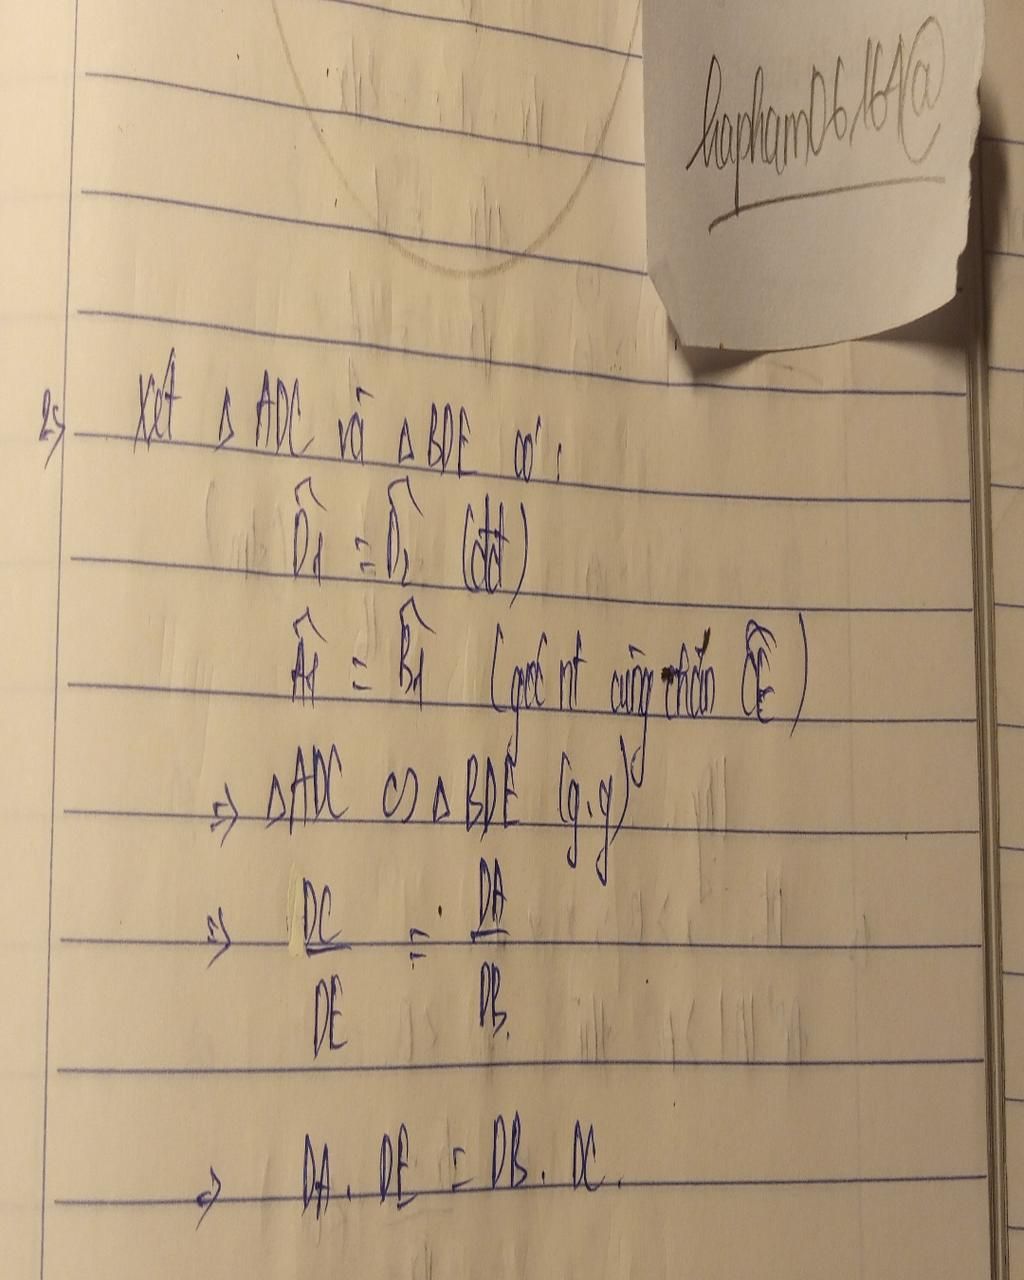 hapham06164@
2, Xét Δ ADC và Δ BDE có:
D̂1 = D̂2 (đđ)
Â1 = B̂1 (góc nt cùng chắn C͡E)
=> ΔADC ∽ Δ BDE (g.g)
=> DC/DE = DA/DB.
=> DA. DE = DB. DC.